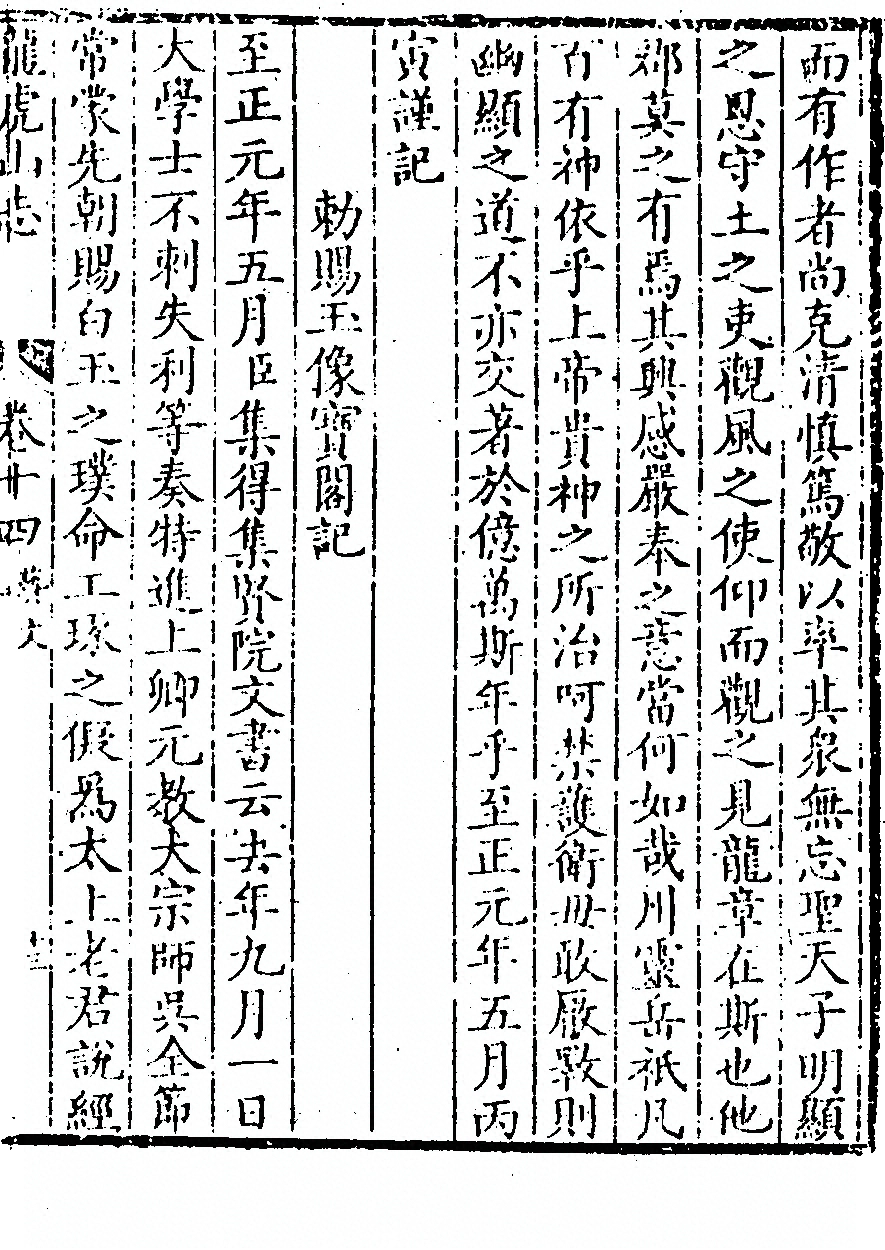 而有作者尚克清慎篤敬以率其衆無忘聖天子明顯
之恩守土之吏觀風之使仰而觀之見龍章在斯也他
郡莫之有焉其興感嚴奉之意當何如哉川靈岳祇凡
百有神依乎上帝貴神之所治呵禁護衛毋敢厭斁則
幽顯之道不亦交著於億萬斯年乎至正元年五月丙
寅謹記
勅賜玉像寶閣記
至正元年五月臣集得集賢院文書云去年九月一日
大學士不剌失利等奏特進上卿元教大宗師吳全節
常蒙先朝賜白玉之璞命工琢之假爲太上老君說經
龍虎山志 卷十四 藝文 十三